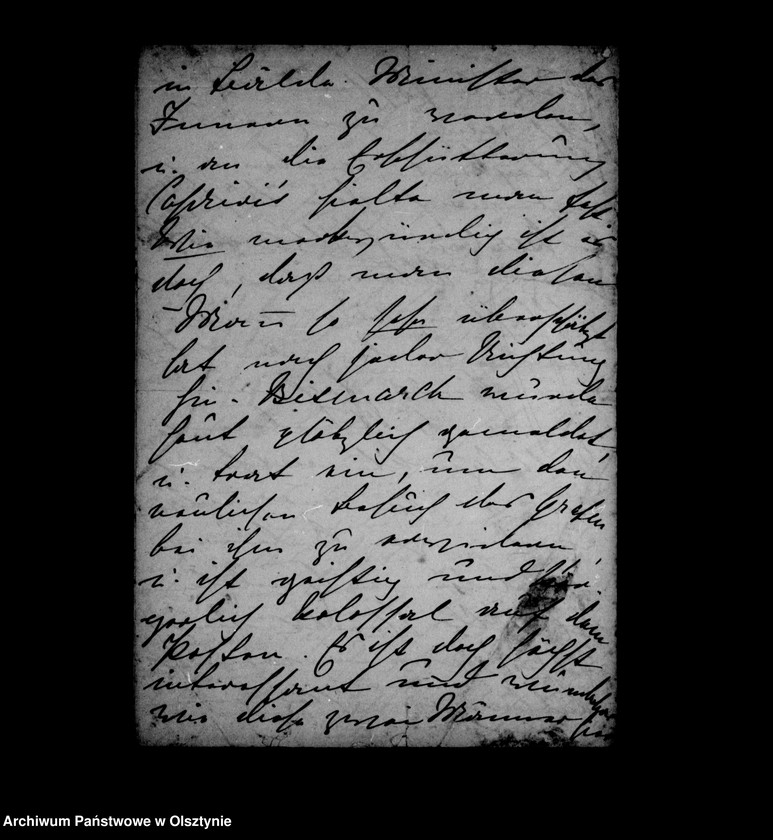 in Bälde Minister des
Innern zu werden,
u. an die Erschütterung
Caprivi's halte man fest
Wie merkwürdig ist es
doch, daß man diesen
Mann so sehr überschätzt
hat nach jeder Richtung
hin. Bismarck wurde
heut plötzlich gemeldet,
u. trat ein, um den
neulichen Besuch des Grafen
bei ihm zu erwidern,
u. ist geistig und kör
perlich kolossal auf dem
Posten. Es ist doch höchst
interessant und
wie diese zwei Männer hier
Archiwum Państwowe w Olsztynie